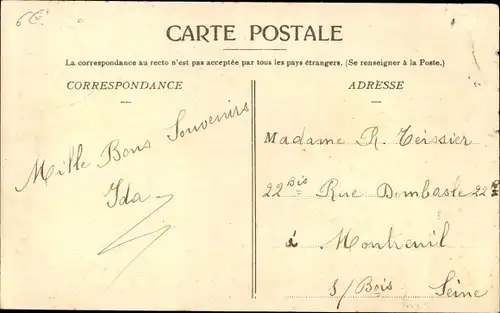 6E
CARTE POSTALE
La correspondance au recto n'est pas acceptée par tous les pays étrangers. (Se renseigner à la Poste.)
CORRESPONDANCE
Mille Bons Souvenirs
Ida
ADRESSE
Madame Ph. Teissier
22 Bis Rue Dombasle 22 B
à Montreuil
s/Bois Seine